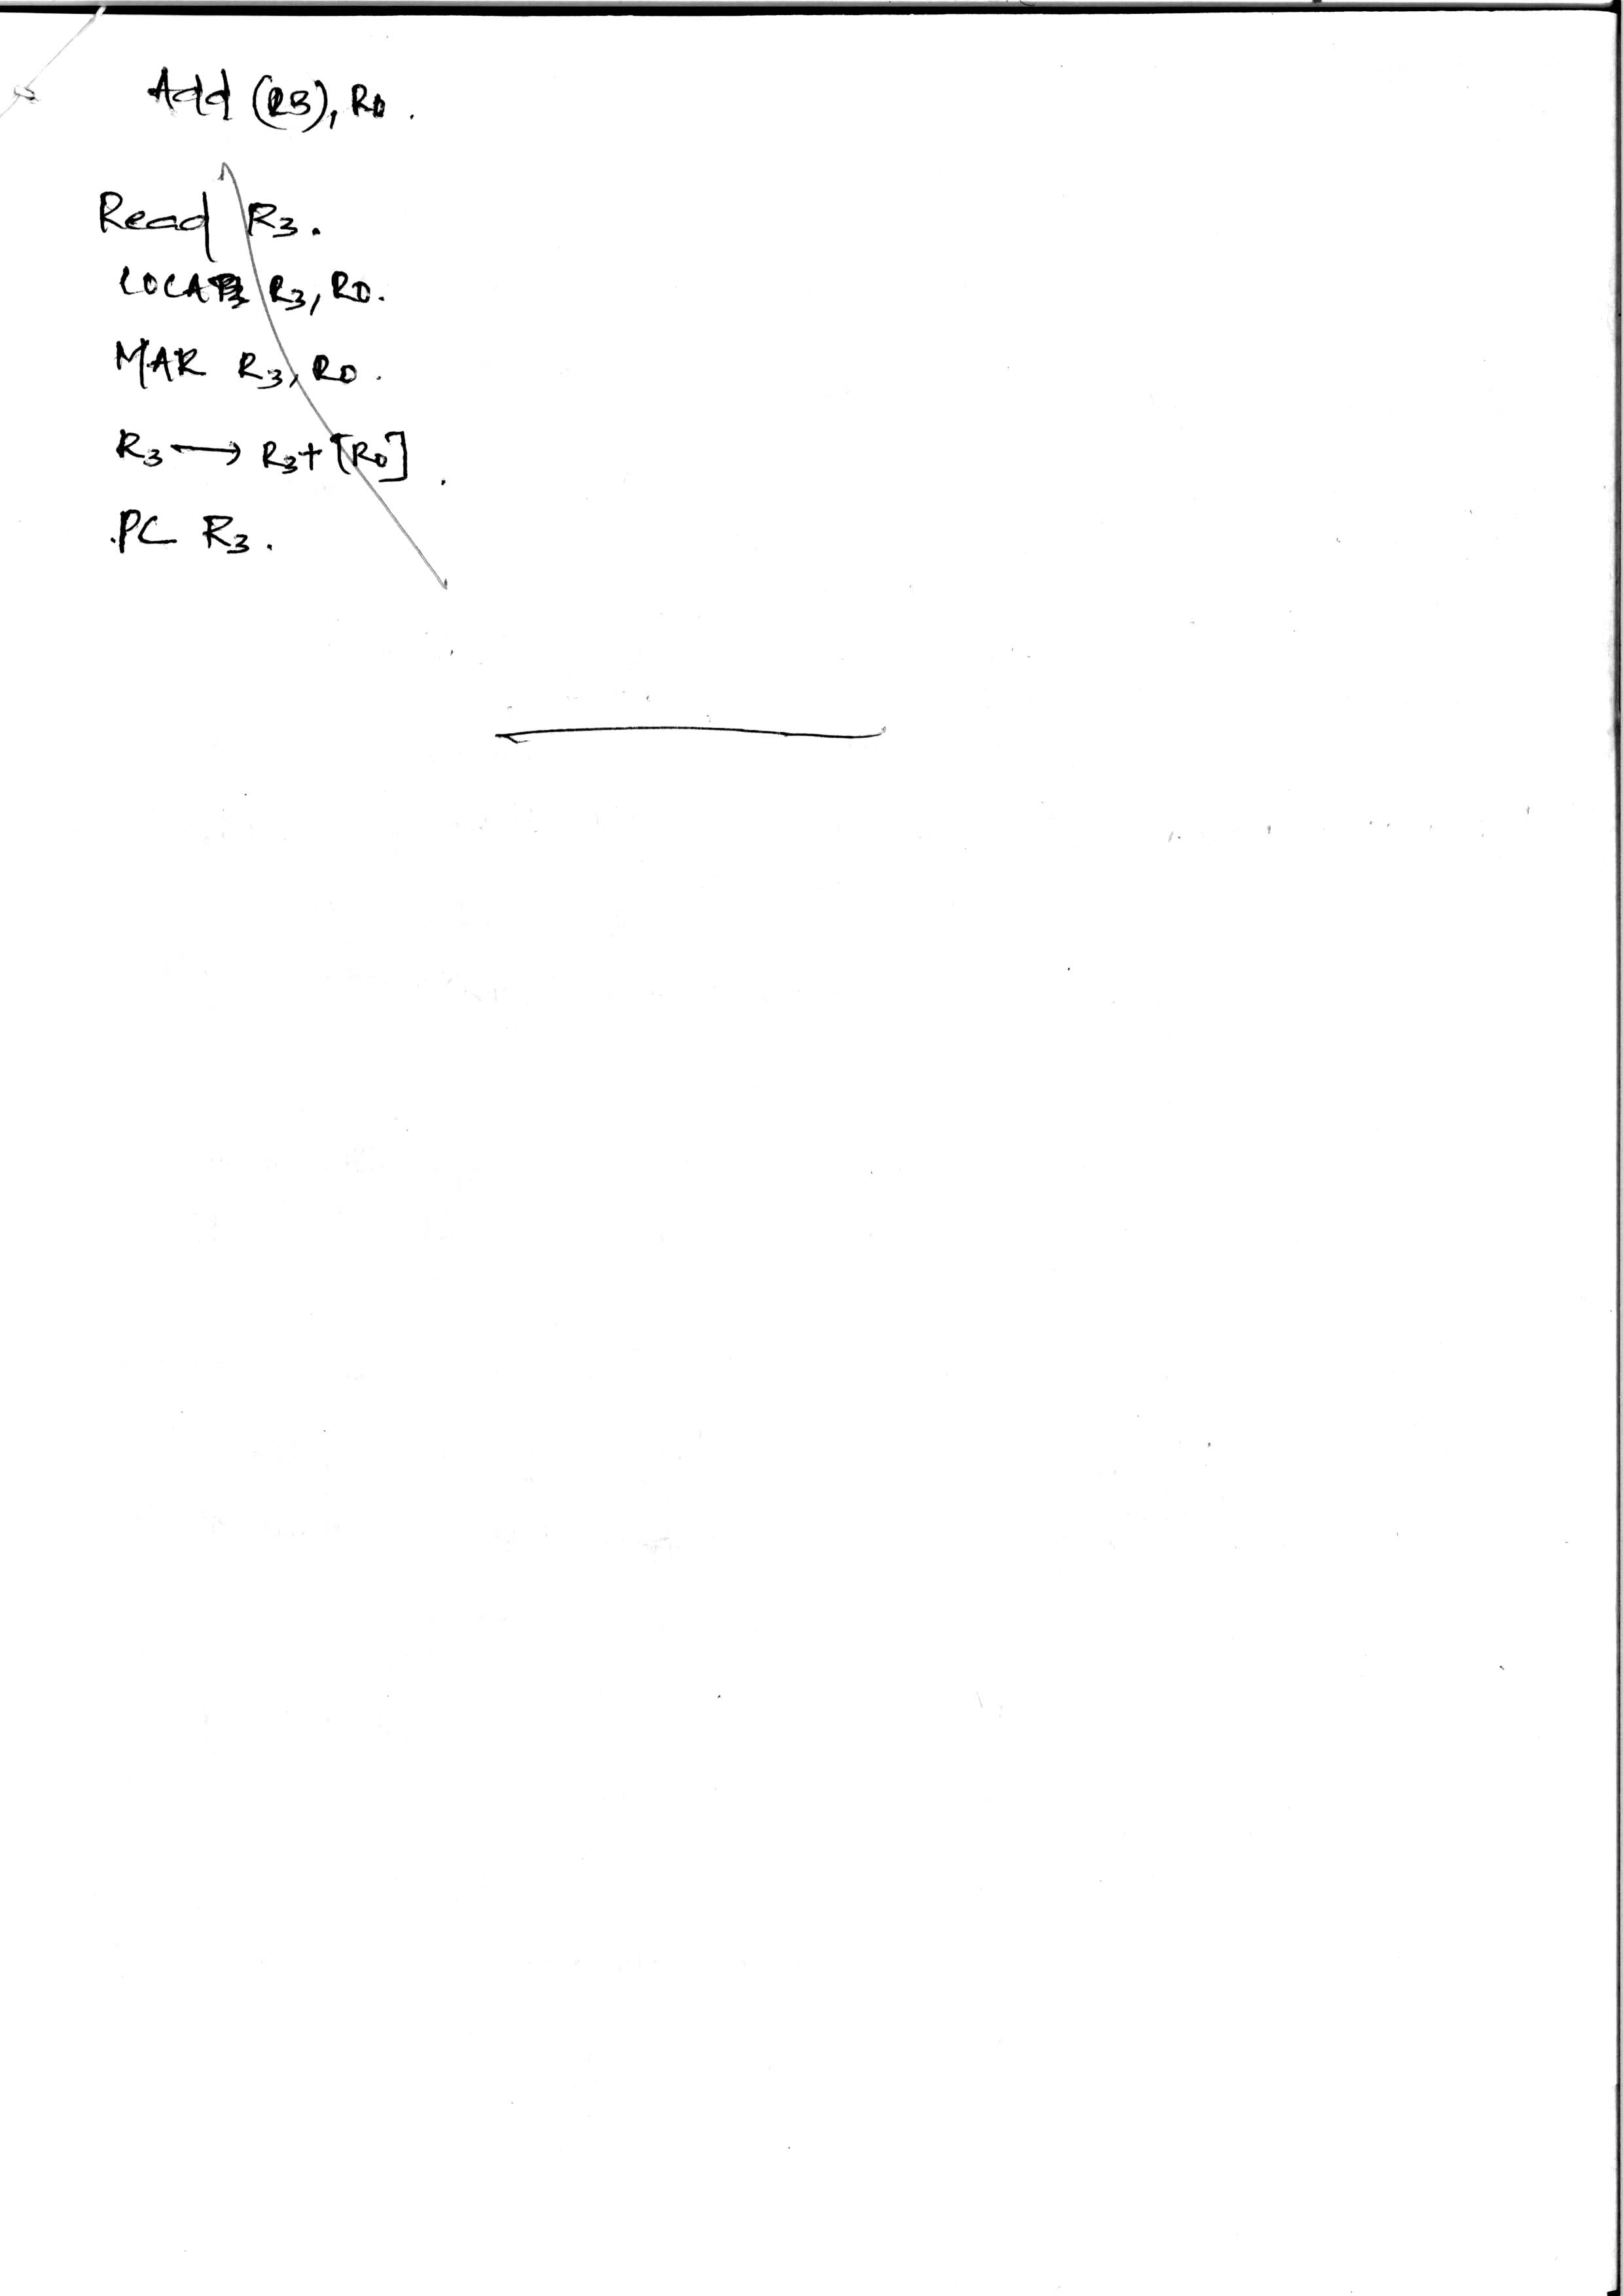 Add (R3), R0.
Read R3.
R3, R0.
MAR R3, R0.
R3 → R3+[R0].
PC R3.